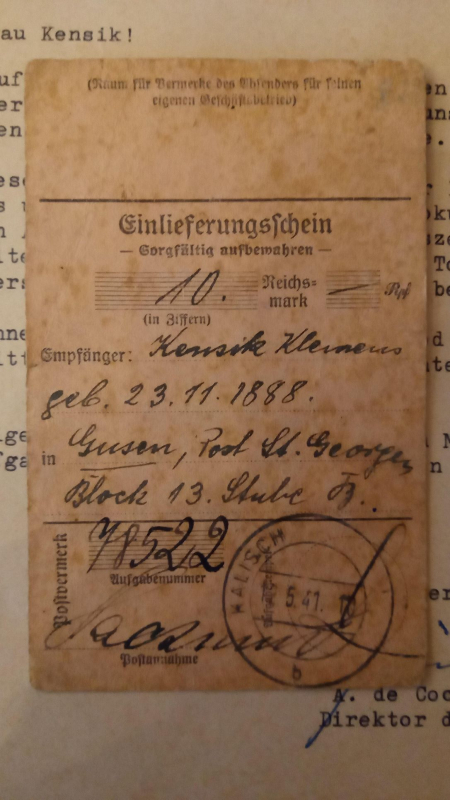 au Kensik!
(Raum für Vermerke des Absenders für seinen
eigenen Geschäftsbetrieb)
Einlieferungsschein
— Sorgfältig aufbewahren —
10. Reichs- — Rpf
mark
(in Ziffern)
Empfänger: Kensik Klemens
geb. 23.11.1888.
in Gusen, Post St. Georgen
Block 13. Stube B.
Postvermerk
78522
Aufgabenummer
KALISCH
5.41.
b
Postannahme
A. de Coc
Direktor d